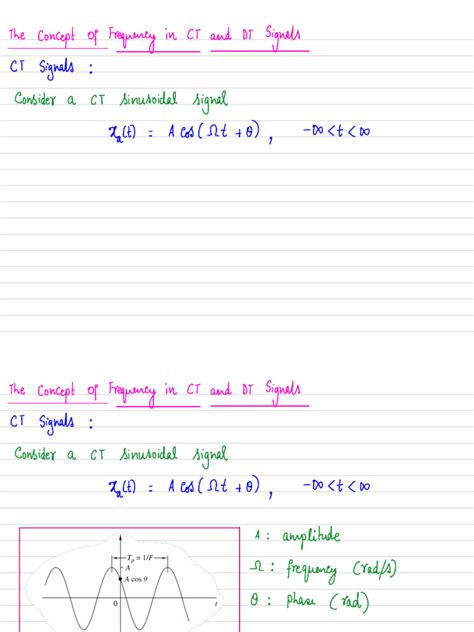 The Concept of Frequency in CT and DT Signals
CT Signals :
Consider a CT sinusoidal signal
xₐ(t) = A cos(Ωt + θ) , -∞ < t < ∞
The Concept of Frequency in CT and DT Signals
CT Signals :
Consider a CT sinusoidal signal
xₐ(t) = A cos(Ωt + θ) , -∞ < t < ∞
A : amplitude
Tₚ = 1/F
A
A cos θ
Ω : frequency (rad/s)
0
t
θ : phase (rad)